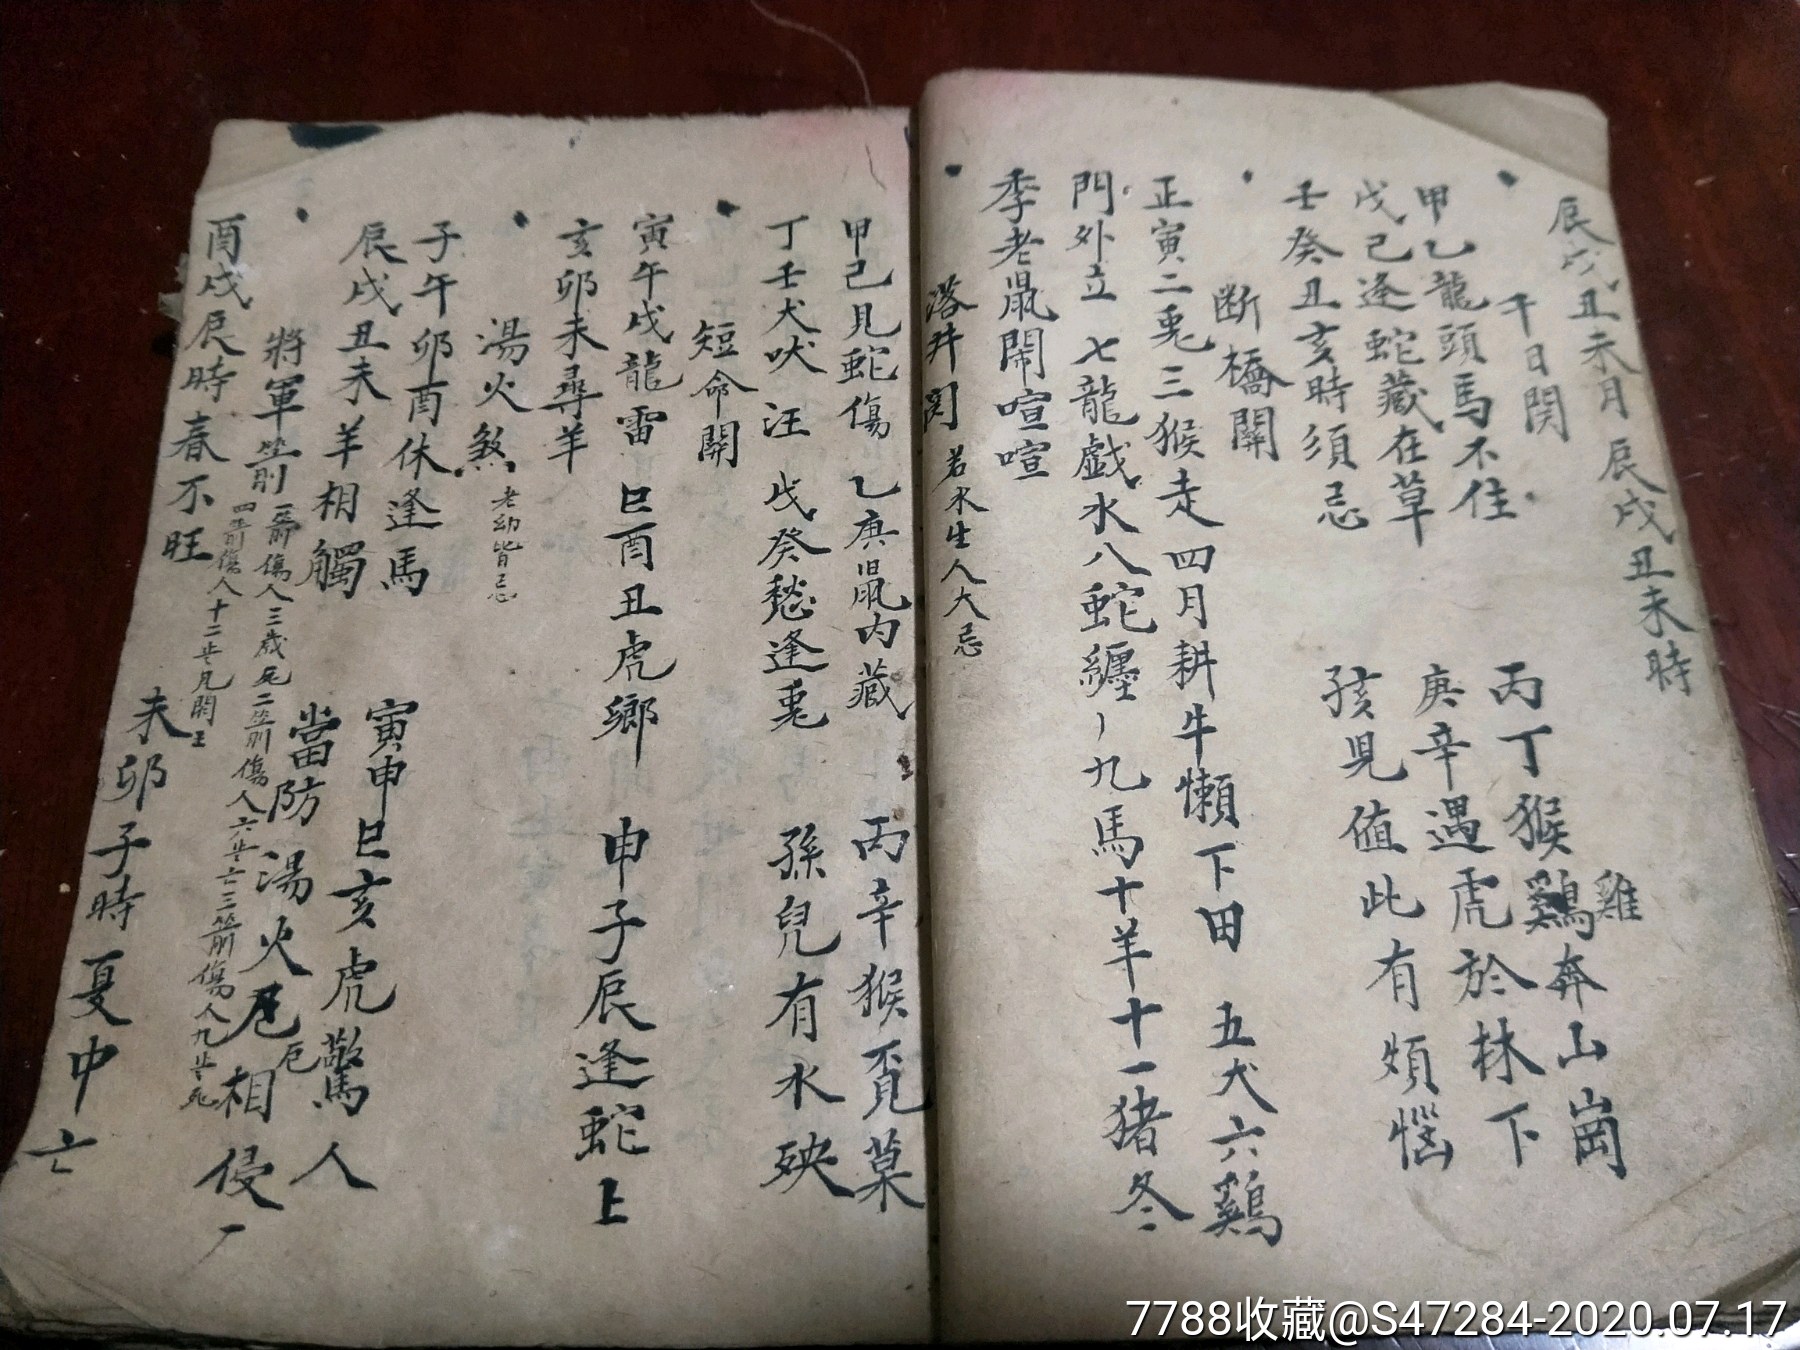 辰戌丑未月 辰戌丑未時
千日関
甲乙龍頭馬不住 丙丁猴鷄奔山崗
雞
戊己逢蛇藏在草 庚辛遇虎於林下
壬癸丑亥時須忌 孩児値此有煩惱
断橋關
正寅二兎三猴走 四月耕牛懶下田 五犬六鷄
門外立 七龍戯水八蛇纒 九馬十羊十一猪冬
季老鼠鬧喧喧
落井関 若水生人大忌
甲己見蛇傷 乙庚鼠内藏 丙辛猴覓菓
丁壬犬吠汪 戊癸愁逢兎 孫兒有水殃
短命關
寅午戌龍雷 巳酉丑虎鄉 申子辰逢蛇上
亥卯未尋羊
湯火煞 老幼皆忌
子午卯酉休逢馬 寅申巳亥虎驚人
辰戌丑未羊相觸 當防湯火厄相侵
厄
將軍箭 一箭傷人三歳死二箭傷人六歲亡三箭傷人九歲死
四箭傷人十二歲
酉戌辰時春不旺 未卯子時夏中亡
7788收藏@S47284-2020.07.17